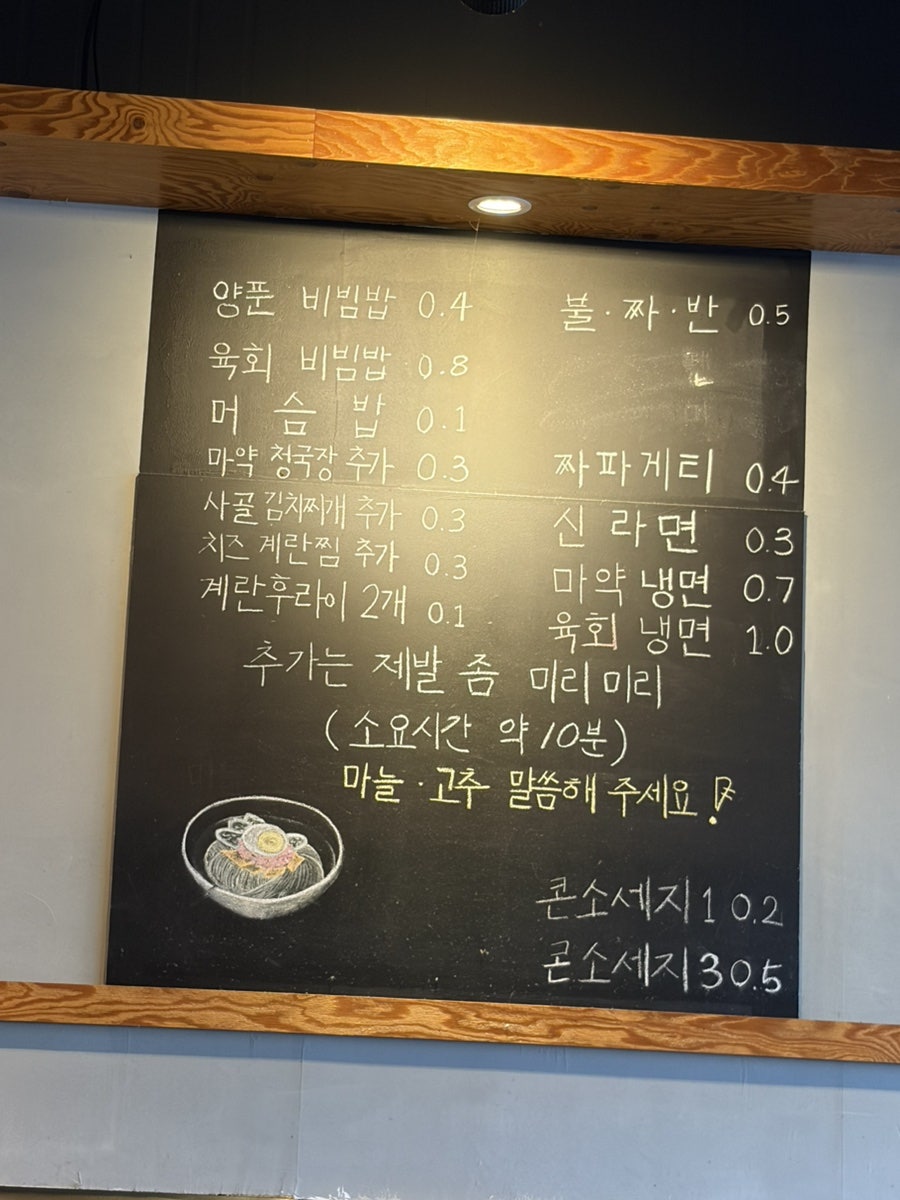 양푼 비빔밥 0.4
육회 비빔밥 0.8
머슴밥 0.1
마약 청국장 추가 0.3
사골 김치찌개 추가 0.3
치즈 계란찜 추가 0.3
계란후라이 2개 0.1
불·짜·반 0.5
짜파게티 0.4
신라면 0.3
마약 냉면 0.7
육회 냉면 1.0
추가는 제발 좀 미리미리
(소요시간 약 10분)
마늘·고추 말씀해 주세요!
콘소세지1 0.2
콘소세지3 0.5